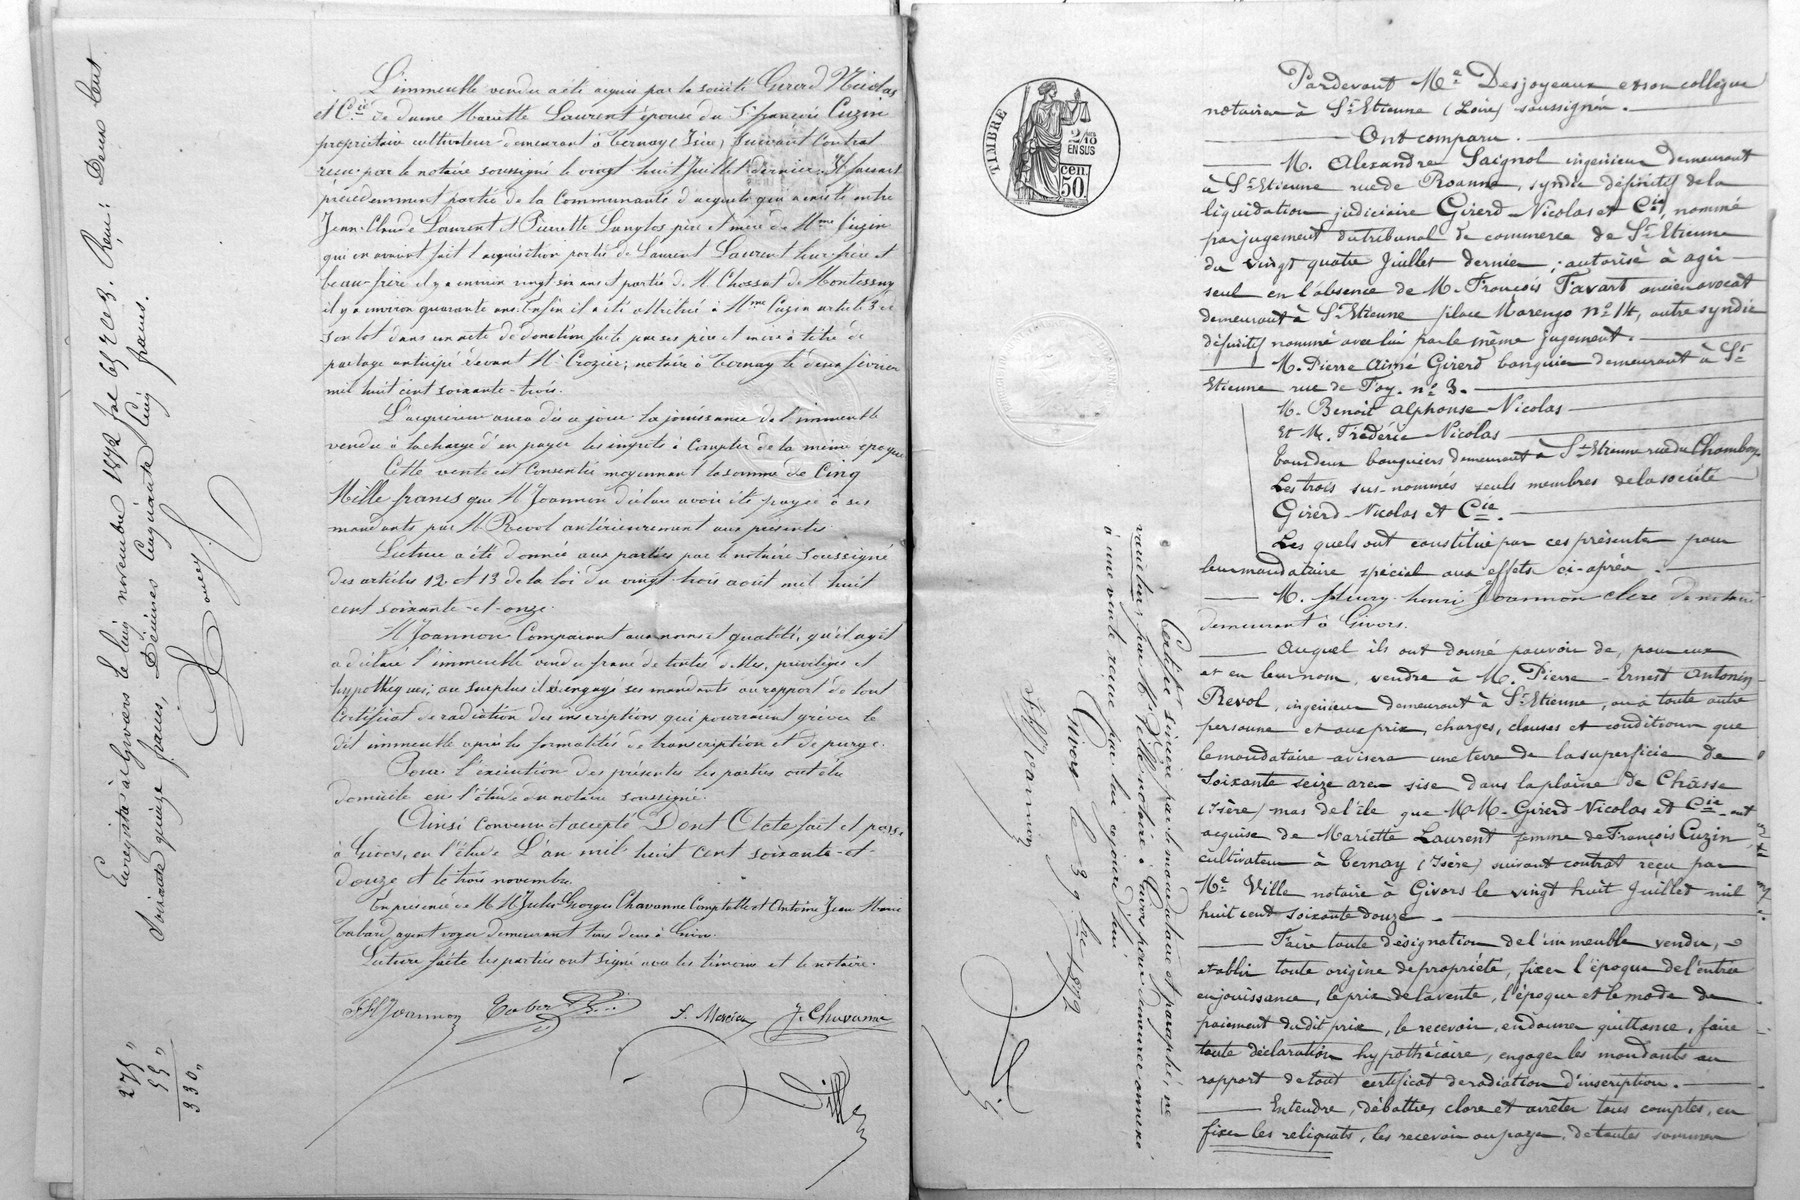 L'immeuble vendu a été acquis par la société Girerd Nicolas
et Cie de dame Mariette Laurent épouse du Sr françois Cuzin
propriétaire cultivateur demeurant à Ternay (Isère) suivant Contrat
reçu par le notaire soussigné le vingt huit Juillet dernier. Il faisait
précédemment partie de la Communauté d'acquets qui a existé entre
Jean-Claude Laurent et Pierrette Langlos père et mère de Mme Cuzin
qui en avaient fait l'acquisition partie de Laurent Laurent leur frère et
beau-frère il y a environ vingt six ans et partie de M. Chossat de Montessuy
il y a environ quarante ans. Enfin il a été attribué à Mme Cuzin article 3 de
son lot dans un acte de donation faite par ses père et mère à titre de
partage anticipé devant Me Crozier, notaire à Ternay le deux février
mil huit cent soixante-trois.
L'acquéreur aura dès ce jour la jouissance de l'immeuble
vendu à la charge d'en payer les impôts à Compter de la même époque
Cette vente est Consentie moyennant la somme de Cinq
Mille francs que M Joannon déclare avoir été payée à ses
mandants par M. Revol antérieurement aux présentes
Lecture a été donnée aux parties par le notaire soussigné
des articles 12 et 13 de la loi du vingt trois août mil huit
cent soixante-et-onze.
M Joannon Comparant aux noms et qualités, qu'il agit
a déclaré l'immeuble vendu franc de toutes dettes, privilèges et
hypothèques; au surplus il engage ses mandants au rapport de tout
Certificat de radiation des inscriptions qui pourraient grever le
dit immeuble après les formalités de transcription et de purge.
Pour l'exécution des présentes les parties ont élu
domicile en l'étude du notaire soussigné.
Ainsi Convenu et accepté Dont Acte fait et passé
à Givors, en l'étude L'an mil huit cent soixante-et-
douze et le trois novembre.
En présence de MM Jules Georges Chavanne Comptable et Antoine Jean Marie
Tabard agent voyer demeurant tous deux à Givors.
Lecture faite les parties ont signé avec les témoins et le notaire.
FHJoannon Tabard J. Chavanne
Ville
Enregistré à Givors le cinq novembre 1872 fol 65 Rc 3. Reçu: Deux cent
soixante quinze francs, Décimes Cinquante Cinq francs.
275 "
55 "
330 "
TIMBRE
2/10 EN SUS
50 cen.
Pardevant Me Desjoyeaux et son collègue
notaires à St-Etienne (Loire) soussignés.
Ont comparu.
M. Alexandre Saignol ingénieur demeurant
à St-Etienne rue de Roanne, syndic définitif de la
liquidation judiciaire Girerd-Nicolas et Cie, nommé
par jugement du tribunal de commerce de St-Etienne
du vingt quatre Juillet dernier; autorisé à agir
seul en l'absence de M. François Favart ancien avocat
demeurant à St-Etienne place Marengo no 14, autre syndic
définitif nommé avec lui par le même jugement.
M. Pierre Aimé Girerd banquier demeurant à St-
Etienne rue de Foy. no 3.
M. Benoit Alphonse Nicolas
Et M. Fréderic Nicolas
tous deux banquiers demeurant à St-Etienne rue du Chambon
Les trois sus-nommés seuls membres de la société
Girerd-Nicolas et Cie.
Les quels ont constitué par ces présentes pour
leur mandataire spécial aux effets ci-après.
M. fleury-henri Joannon clerc de notaire
demeurant à Givors.
Auquel ils ont donné pouvoir de, pour eux
et en leur nom, vendre à M. Pierre-Ernest Antonin
Revol, ingénieur demeurant à St-Etienne, ou à toute autre
personne et aux prix, charges, clauses et conditions que
le mandataire avisera une terre de la superficie de
Soixante seize ares sise dans la plaine de Chasse
(Isère) mas de l'ile que MM. Girerd-Nicolas et Cie ont
acquise de Mariette Laurent femme de François Cuzin,
cultivateur à Ternay (Isère) suivant contrat reçu par
Me Ville notaire à Givors le vingt huit Juillet mil
huit cent soixante douze.
Faire toute désignation de l'immeuble vendu,
établir toute origine de propriété, fixer l'époque de l'entrée
en jouissance, le prix de la vente, l'époque et le mode de
paiement du dit prix, le recevoir, en donner quittance, faire
toute déclaration hypothécaire, engager les mandants au
rapport de tout certificat de radiation d'inscription.
Entendre, débattre, clore et arrêter tous comptes, en
fixer les reliquats, les recevoir ou payer, de toutes sommes
Certifié sincère par le mandataire et paraphé, ne
varietur, par Me Ville notaire à Givors pour demeurer annexé
à une vente reçue par lui cejourd'hui,
Givors le 3 9bre 1872
FHJoannon